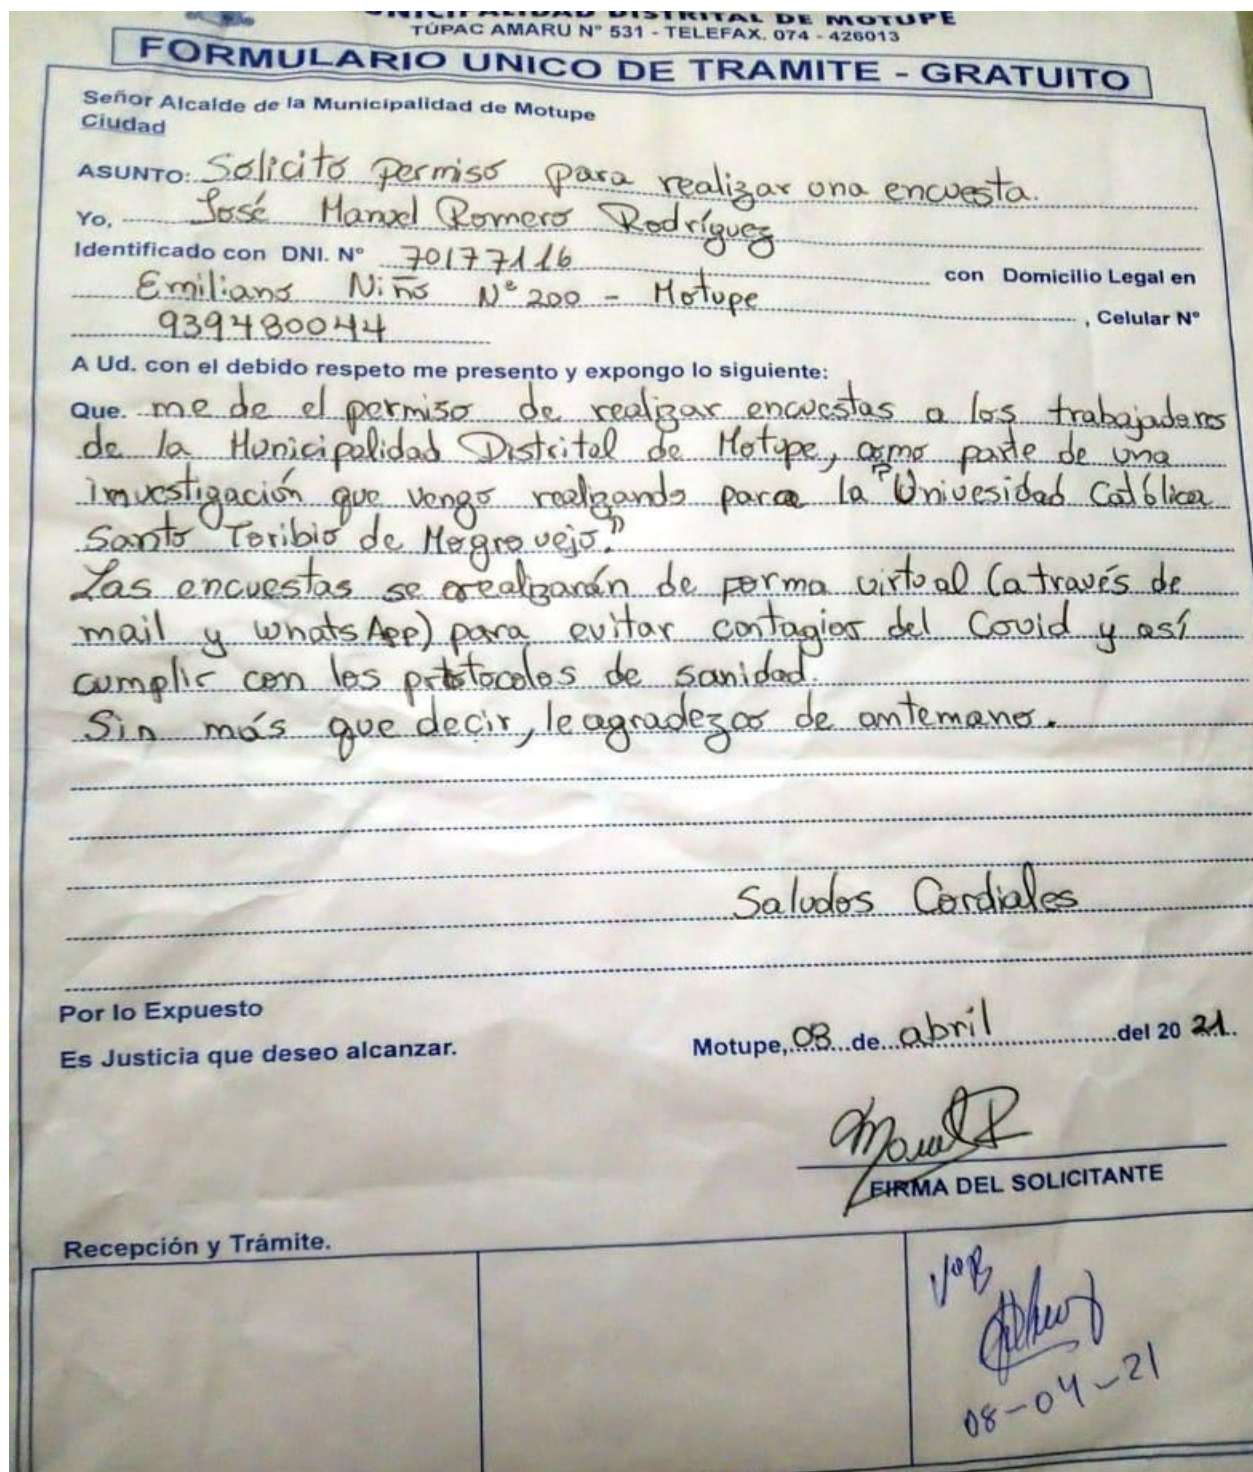 MUNICIPALIDAD DISTRITAL DE MOTUPE
TÚPAC AMARU N° 531 - TELEFAX. 074 - 426013
FORMULARIO UNICO DE TRAMITE - GRATUITO
Señor Alcalde de la Municipalidad de Motupe
Ciudad
ASUNTO: Solicito permiso para realizar una encuesta.
Yo, José Manuel Romero Rodríguez
Identificado con DNI. N° 70177116 con Domicilio Legal en
Emiliano Niño N° 200 - Motupe , Celular N°
939480044
A Ud. con el debido respeto me presento y expongo lo siguiente:
Que. me de el permiso de realizar encuestas a los trabajadores
de la Municipalidad Distrital de Motupe, como parte de una
investigación que vengo realizando para la "Univesidad Católica
Santo Toribio de Mogrovejo."
Las encuestas se realizarán de forma virtual (a través de
mail y WhatsApp) para evitar contagios del Covid y así
cumplir con los protocolos de sanidad.
Sin más que decir, le agradezco de antemano.
Saludos Cordiales
Por lo Expuesto
Es Justicia que deseo alcanzar.
Motupe, 08 de abril del 2021.
FIRMA DEL SOLICITANTE
Recepción y Trámite.
V°B
08-04-21